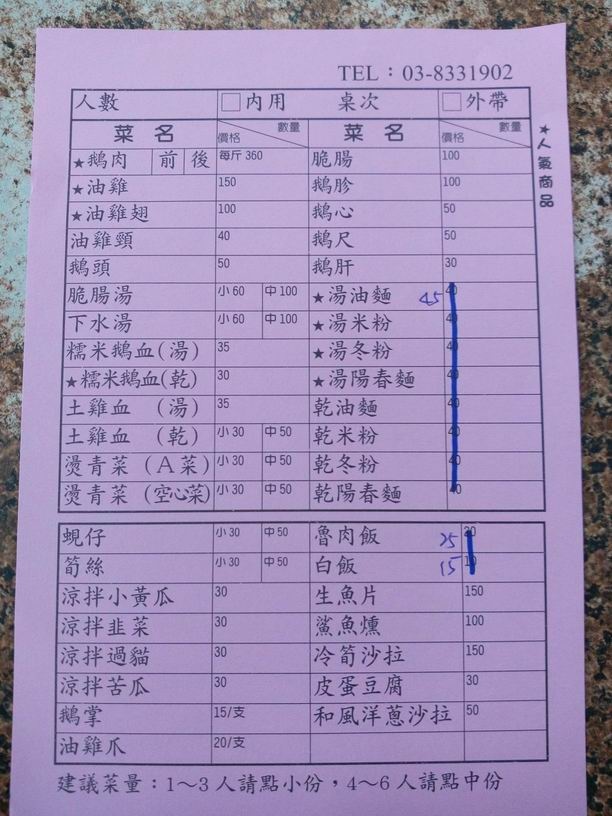 TEL：03-8331902
人數 □內用 桌次 □外帶
菜名 價格 數量 菜名 價格 數量
★鵝肉 前 後 每斤 360 脆腸 100
★油雞 150 鵝胗 100
★油雞翅 100 鵝心 50
油雞頸 40 鵝尺 50
鵝頭 50 鵝肝 30
脆腸湯 小 60 中 100 ★湯油麵 45 40
下水湯 小 60 中 100 ★湯米粉 40
糯米鵝血(湯) 35 ★湯冬粉 40
★糯米鵝血(乾) 30 ★湯陽春麵 40
土雞血 (湯) 35 乾油麵 40
土雞血 (乾) 小 30 中 50 乾米粉 40
燙青菜 (A菜) 小 30 中 50 乾冬粉 40
燙青菜 (空心菜) 小 30 中 50 乾陽春麵 40
★人氣商品
蜆仔 小 30 中 50 魯肉飯 25 20
筍絲 小 30 中 50 白飯 15 10
涼拌小黃瓜 30 生魚片 150
涼拌韭菜 30 鯊魚燻 100
涼拌過貓 30 冷筍沙拉 150
涼拌苦瓜 30 皮蛋豆腐 30
鵝掌 15/支 和風洋蔥沙拉 50
油雞爪 20/支
建議菜量：1～3人請點小份，4～6人請點中份